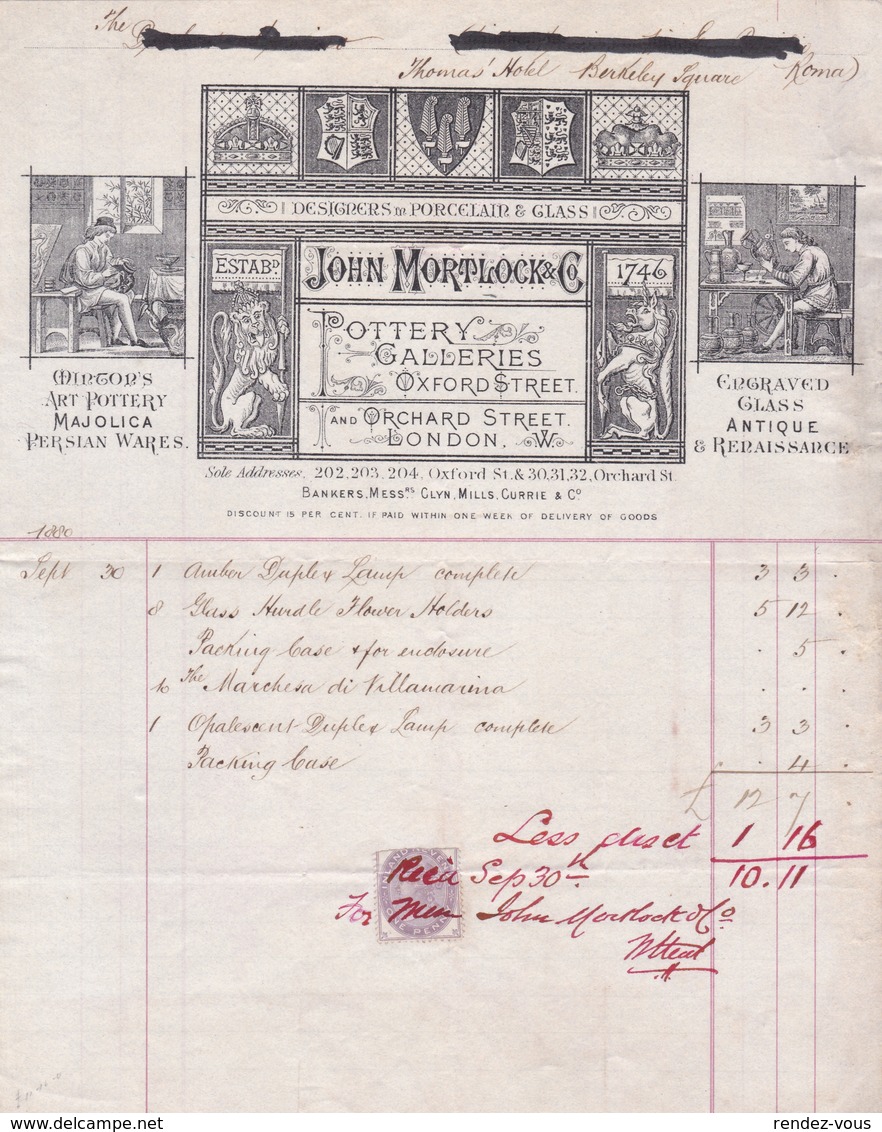 The
Thomas' Hotel Berkeley Square Roma)
DESIGNERS in PORCELAIN & GLASS
ESTABD.
JOHN MORTLOCK & Co
1746
POTTERY
GALLERIES
OXFORD STREET.
AND ORCHARD STREET.
LONDON. W.
MINTON'S
ART POTTERY
MAJOLICA
PERSIAN WARES.
ENGRAVED
GLASS
ANTIQUE
& RENAISSANCE
Sole Addresses, 202, 203, 204, Oxford St. & 30, 31, 32, Orchard St.
BANKERS, MESSRS GLYN, MILLS, CURRIE & Co
DISCOUNT 15 PER CENT. IF PAID WITHIN ONE WEEK OF DELIVERY OF GOODS
1880
Sept 30 1 Amber Duplex Lamp complete 3 3 .
8 Glass Hurdle Flower Holders 5 12 .
Packing Case & for enclosure . 5 .
to The Marchesa di Villamarina . . .
1 Opalescent Duplex Lamp complete 3 3 .
Packing Case . 4 .
£ 12 7 .
Less disct 1 16
INLAND REVENUE
Recd Sep 30th 10.11
For John Mortlock & Co
ONE PENNY
rendez-vous